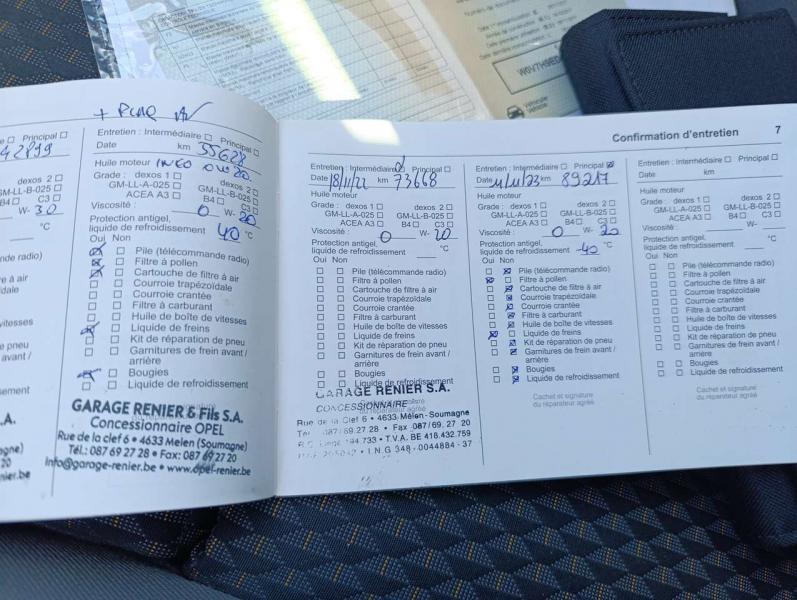 + PLAQ AV
Principal ☐
42899
dexos 2 ☐
GM-LL-B-025 ☐
B4 ☐ C3 ☐
W- 30
°C
radio)
à air
vitesses
pneu
avant /
Entretien : Intermédiaire ☐ Principal ☐
Date km 55628
Huile moteur INEO 0W20
Grade : dexos 1 ☐ dexos 2 ☐
GM-LL-A-025 ☐ GM-LL-B-025 ☐
ACEA A3 ☐ B4 ☐ C3 ☐
Viscosité : 0 W- 20
Protection antigel,
liquide de refroidissement 40 °C
Oui Non
Pile (télécommande radio)
Filtre à pollen
Cartouche de filtre à air
Courroie trapézoïdale
Courroie crantée
Filtre à carburant
Huile de boîte de vitesses
Liquide de freins
Kit de réparation de pneu
Garnitures de frein avant /
arrière
Bougies
Liquide de refroidissement
GARAGE RENIER & Fils S.A.
Concessionnaire OPEL
Rue de la clef 6 • 4633 Melen (Soumagne)
Tél.: 087 69 27 28 • Fax: 087 69 27 20
info@garage-renier.be • www.opel-renier.be
Confirmation d'entretien 7
Entretien : Intermédiaire Principal ☐
Date 18/11/22 km 73668
Huile moteur
Grade : dexos 1 ☐ dexos 2 ☐
GM-LL-A-025 ☐ GM-LL-B-025 ☐
ACEA A3 ☐ B4 ☐ C3 ☐
Viscosité : 0 W- 20
Protection antigel,
liquide de refroidissement °C
Oui Non
Pile (télécommande radio)
Filtre à pollen
Cartouche de filtre à air
Courroie trapézoïdale
Courroie crantée
Filtre à carburant
Huile de boîte de vitesses
Liquide de freins
Kit de réparation de pneu
Garnitures de frein avant /
arrière
Bougies
Liquide de refroidissement
GARAGE RENIER S.A.
CONCESSIONNAIRE
du réparateur agréé
Rue de la Clef, 6 • 4633 Melen - Soumagne
087/69.27.28 • Fax 087/69.27.20
733 • T.V.A. BE 418.432.759
I.N.G 348-0044884-37
Entretien : Intermédiaire ☐ Principal ☒
Date km 89217
Huile moteur
Grade : dexos 1 ☐ dexos 2 ☐
GM-LL-A-025 ☐ GM-LL-B-025 ☐
ACEA A3 ☐ B4 ☐ C3 ☐
Viscosité : 0 W- 20
Protection antigel,
liquide de refroidissement -40 °C
Oui Non
Pile (télécommande radio)
Filtre à pollen
Cartouche de filtre à air
Courroie trapézoïdale
Courroie crantée
Filtre à carburant
Huile de boîte de vitesses
Liquide de freins
Kit de réparation de pneu
Garnitures de frein avant /
arrière
Bougies
Liquide de refroidissement
Cachet et signature
du réparateur agréé
Entretien : Intermédiaire ☐ Principal ☐
Date km
Huile moteur
Grade : dexos 1 ☐ dexos 2 ☐
GM-LL-A-025 ☐ GM-LL-B-025 ☐
ACEA A3 ☐ B4 ☐ C3 ☐
Viscosité : W-
Protection antigel,
liquide de refroidissement °C
Oui Non
Pile (télécommande radio)
Filtre à pollen
Cartouche de filtre à air
Courroie trapézoïdale
Courroie crantée
Filtre à carburant
Huile de boîte de vitesses
Liquide de freins
Kit de réparation de pneu
Garnitures de frein avant /
arrière
Bougies
Liquide de refroidissement
Cachet et signature
du réparateur agréé